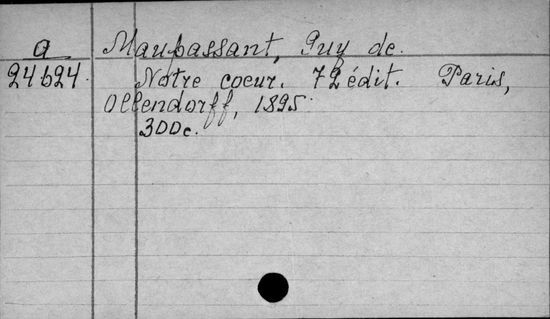 a Maupassant, Guy de.
24624 Notre coeur. 72 édit. Paris,
Ollendorff, 1895.
300c.